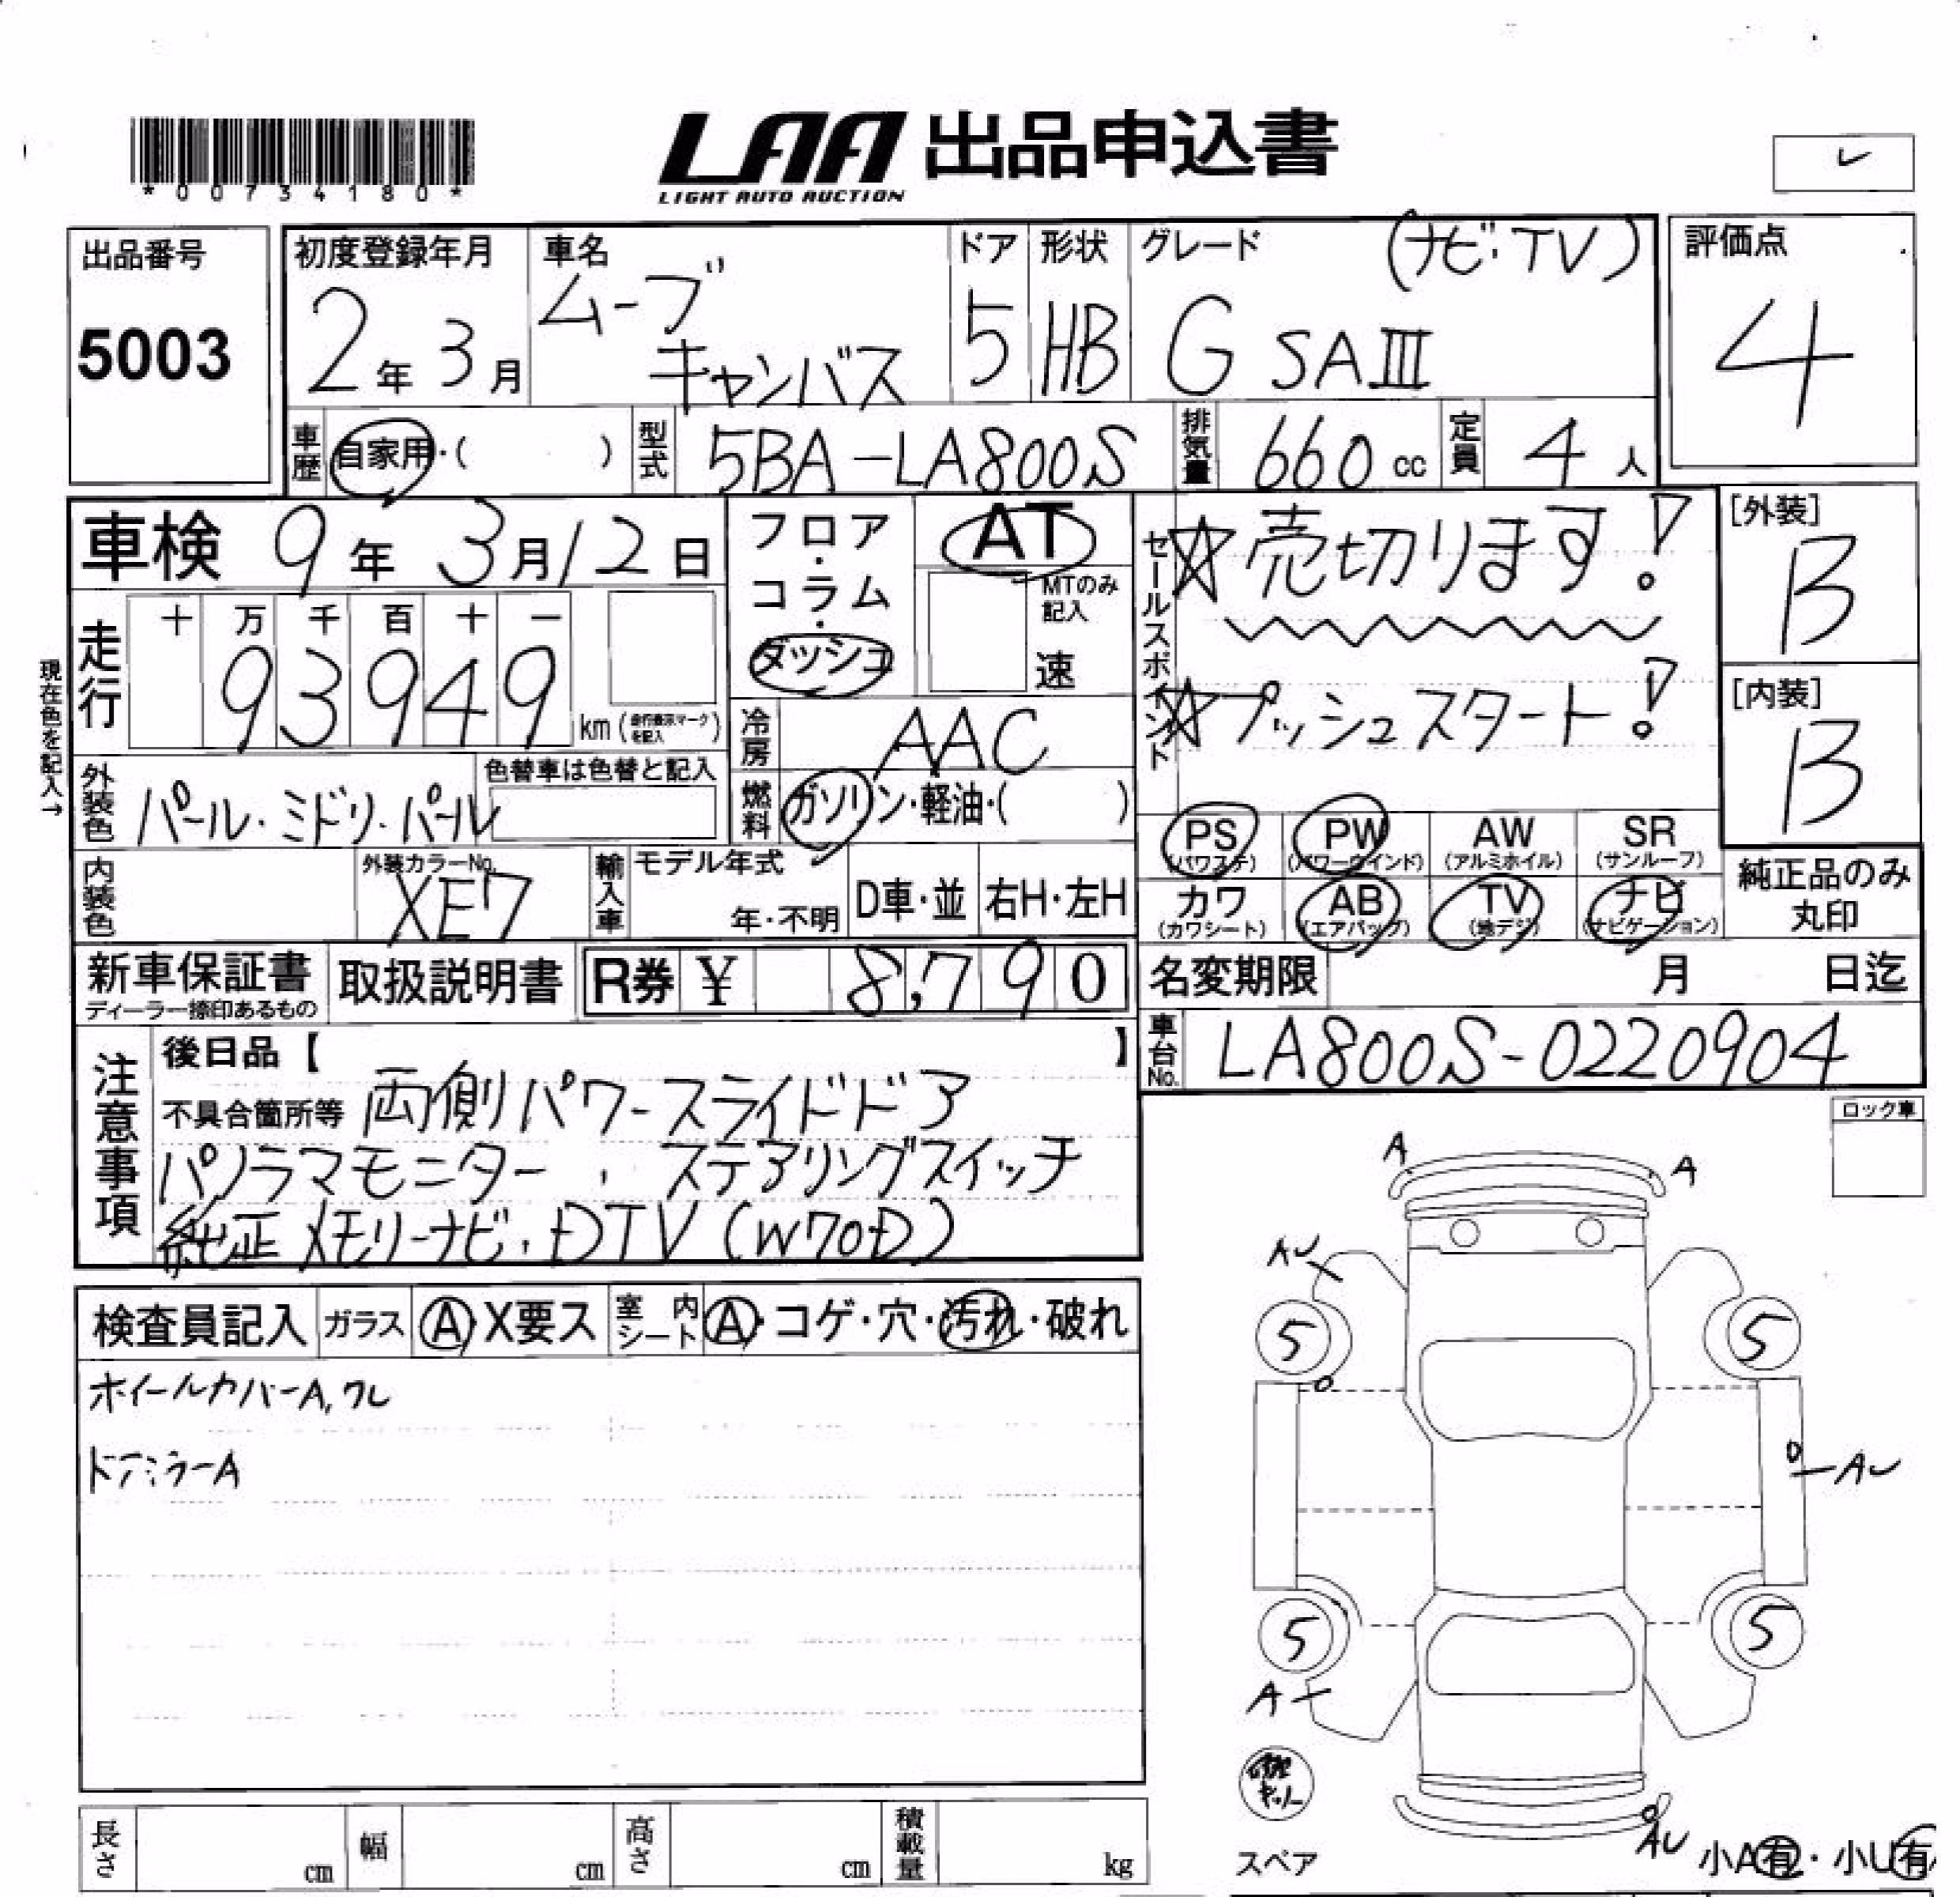 *00734180*
LAA 出品申込書
LIGHT AUTO AUCTION
出品番号
5003
初度登録年月
2年3月
車名
ムーブ
キャンバス
ドア
5
形状
HB
グレード
(ナビ・TV)
G SAⅢ
評価点
4
車歴
自家用・( )
型式
5BA-LA800S
排気量
660cc
定員
4人
車検 9年3月12日
フロア・コラム・ダッシュ
AT
MTのみ記入
速
セールスポイント
☆売切ります!
☆プッシュスタート!
[外装]
B
[内装]
B
現在色を記入→
走行
十 万 千 百 十 一
93949
km(走行表示マークを記入)
冷房
AAC
外装色
パール・ミドリ・パール
色替車は色替と記入
燃料
ガソリン・軽油・( )
PS
(パワステ)
PW
(パワーウインド)
AW
(アルミホイル)
SR
(サンルーフ)
内装色
外装カラーNo.
XE7
輸入車
モデル年式
年・不明
D車・並
右H・左H
カワ
(カワシート)
AB
(エアバッグ)
TV
(地デジ)
ナビ
(ナビゲーション)
純正品のみ
丸印
新車保証書
ディーラー捺印あるもの
取扱説明書
R券 ¥ 8,790
名変期限 月 日迄
車台No.
LA800S-0220904
注意事項
後日品【 】
不具合箇所等 両側パワースライドドア
パノラマモニター、ステアリングスイッチ
純正メモリーナビ、DTV(W70D)
ロック車
A
A
AU
検査員記入
ガラス
A・X要ス
室内シート
A・コゲ・穴・汚れ・破れ
5
5
ホイールカバーA,ワレ
ドアミラーA
AU
5
5
A
スペア
AU
小A有・小U有
長さ cm
幅 cm
高さ cm
積載量 kg